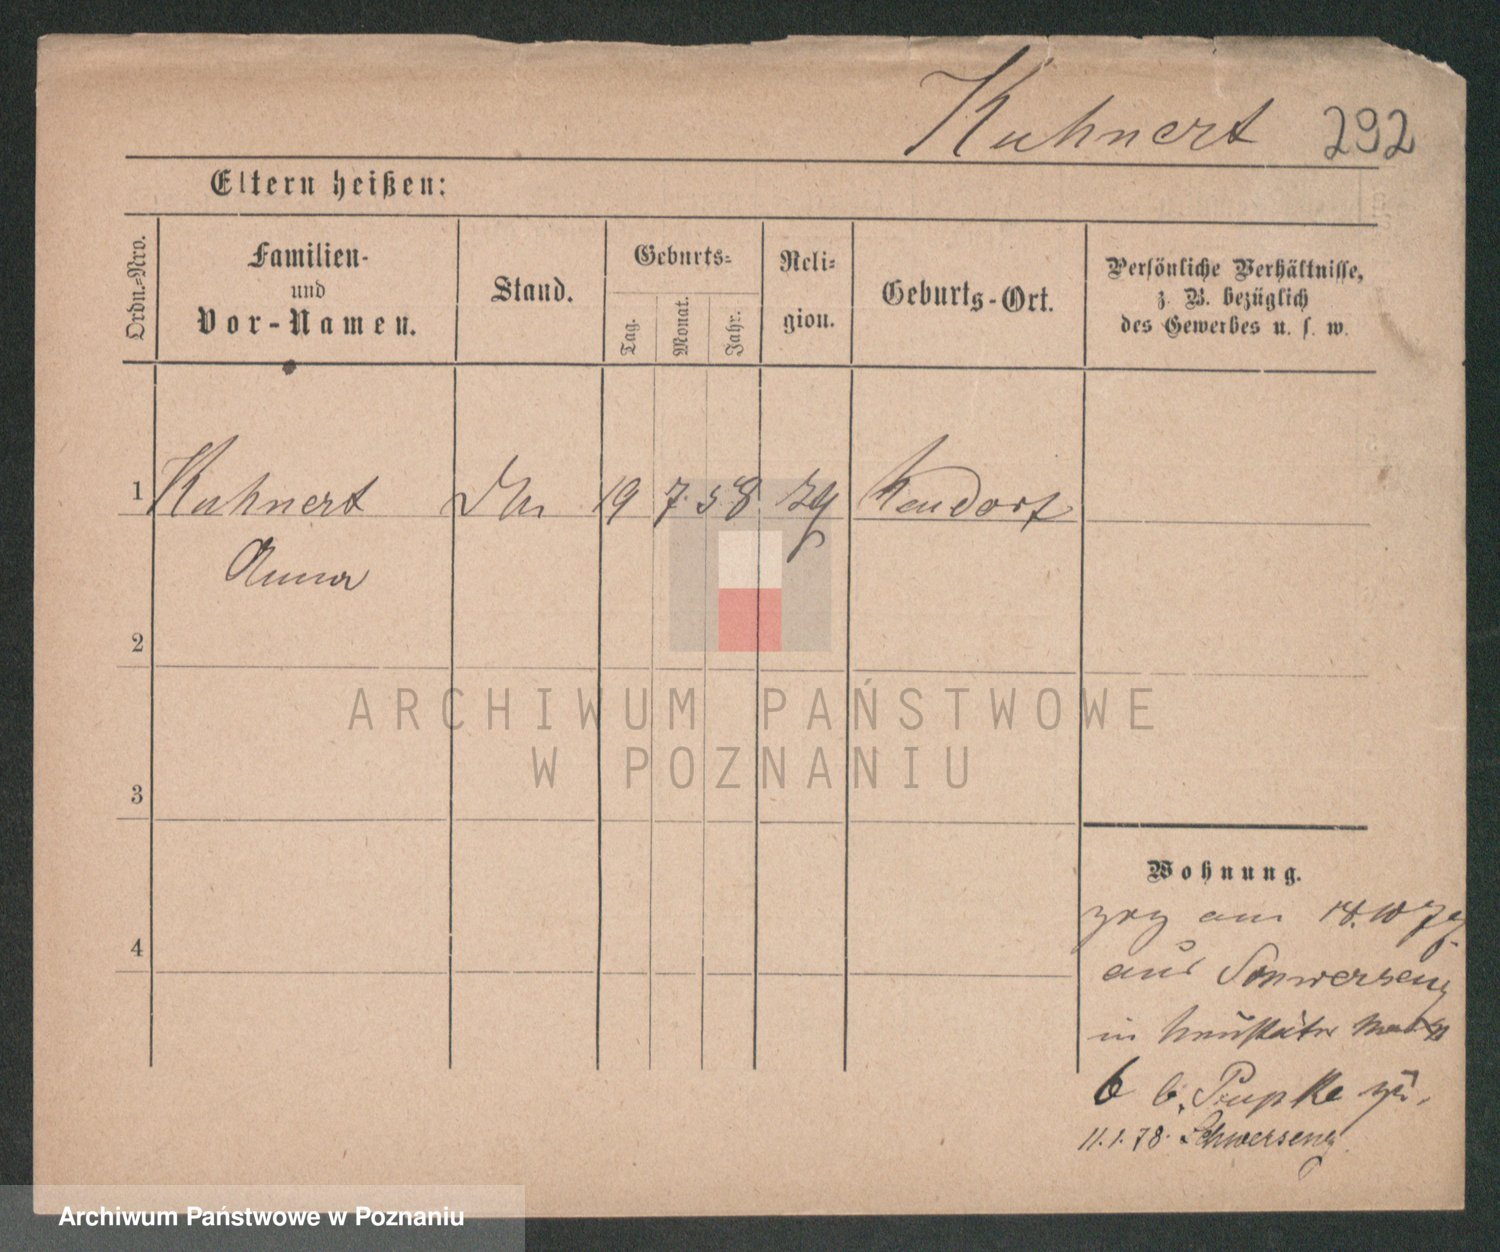 Kuhnert 292
Eltern heißen:
Ordn.-Nro.
Familien-
und
Vor-Namen.
Stand.
Geburts-
Tag.
Monat.
Jahr.
Reli-
gion.
Geburts-Ort.
Persönliche Verhältnisse,
z. B. bezüglich
des Gewerbes u. s. w.
1 Kuhnert 19 7. 58 Neudorf
Anna
2
3
4
ARCHIWUM PAŃSTWOWE
W POZNANIU
Wohnung.
zog am
aus
in
6 b.
11.1.78. Schwersenz
Archiwum Państwowe w Poznaniu